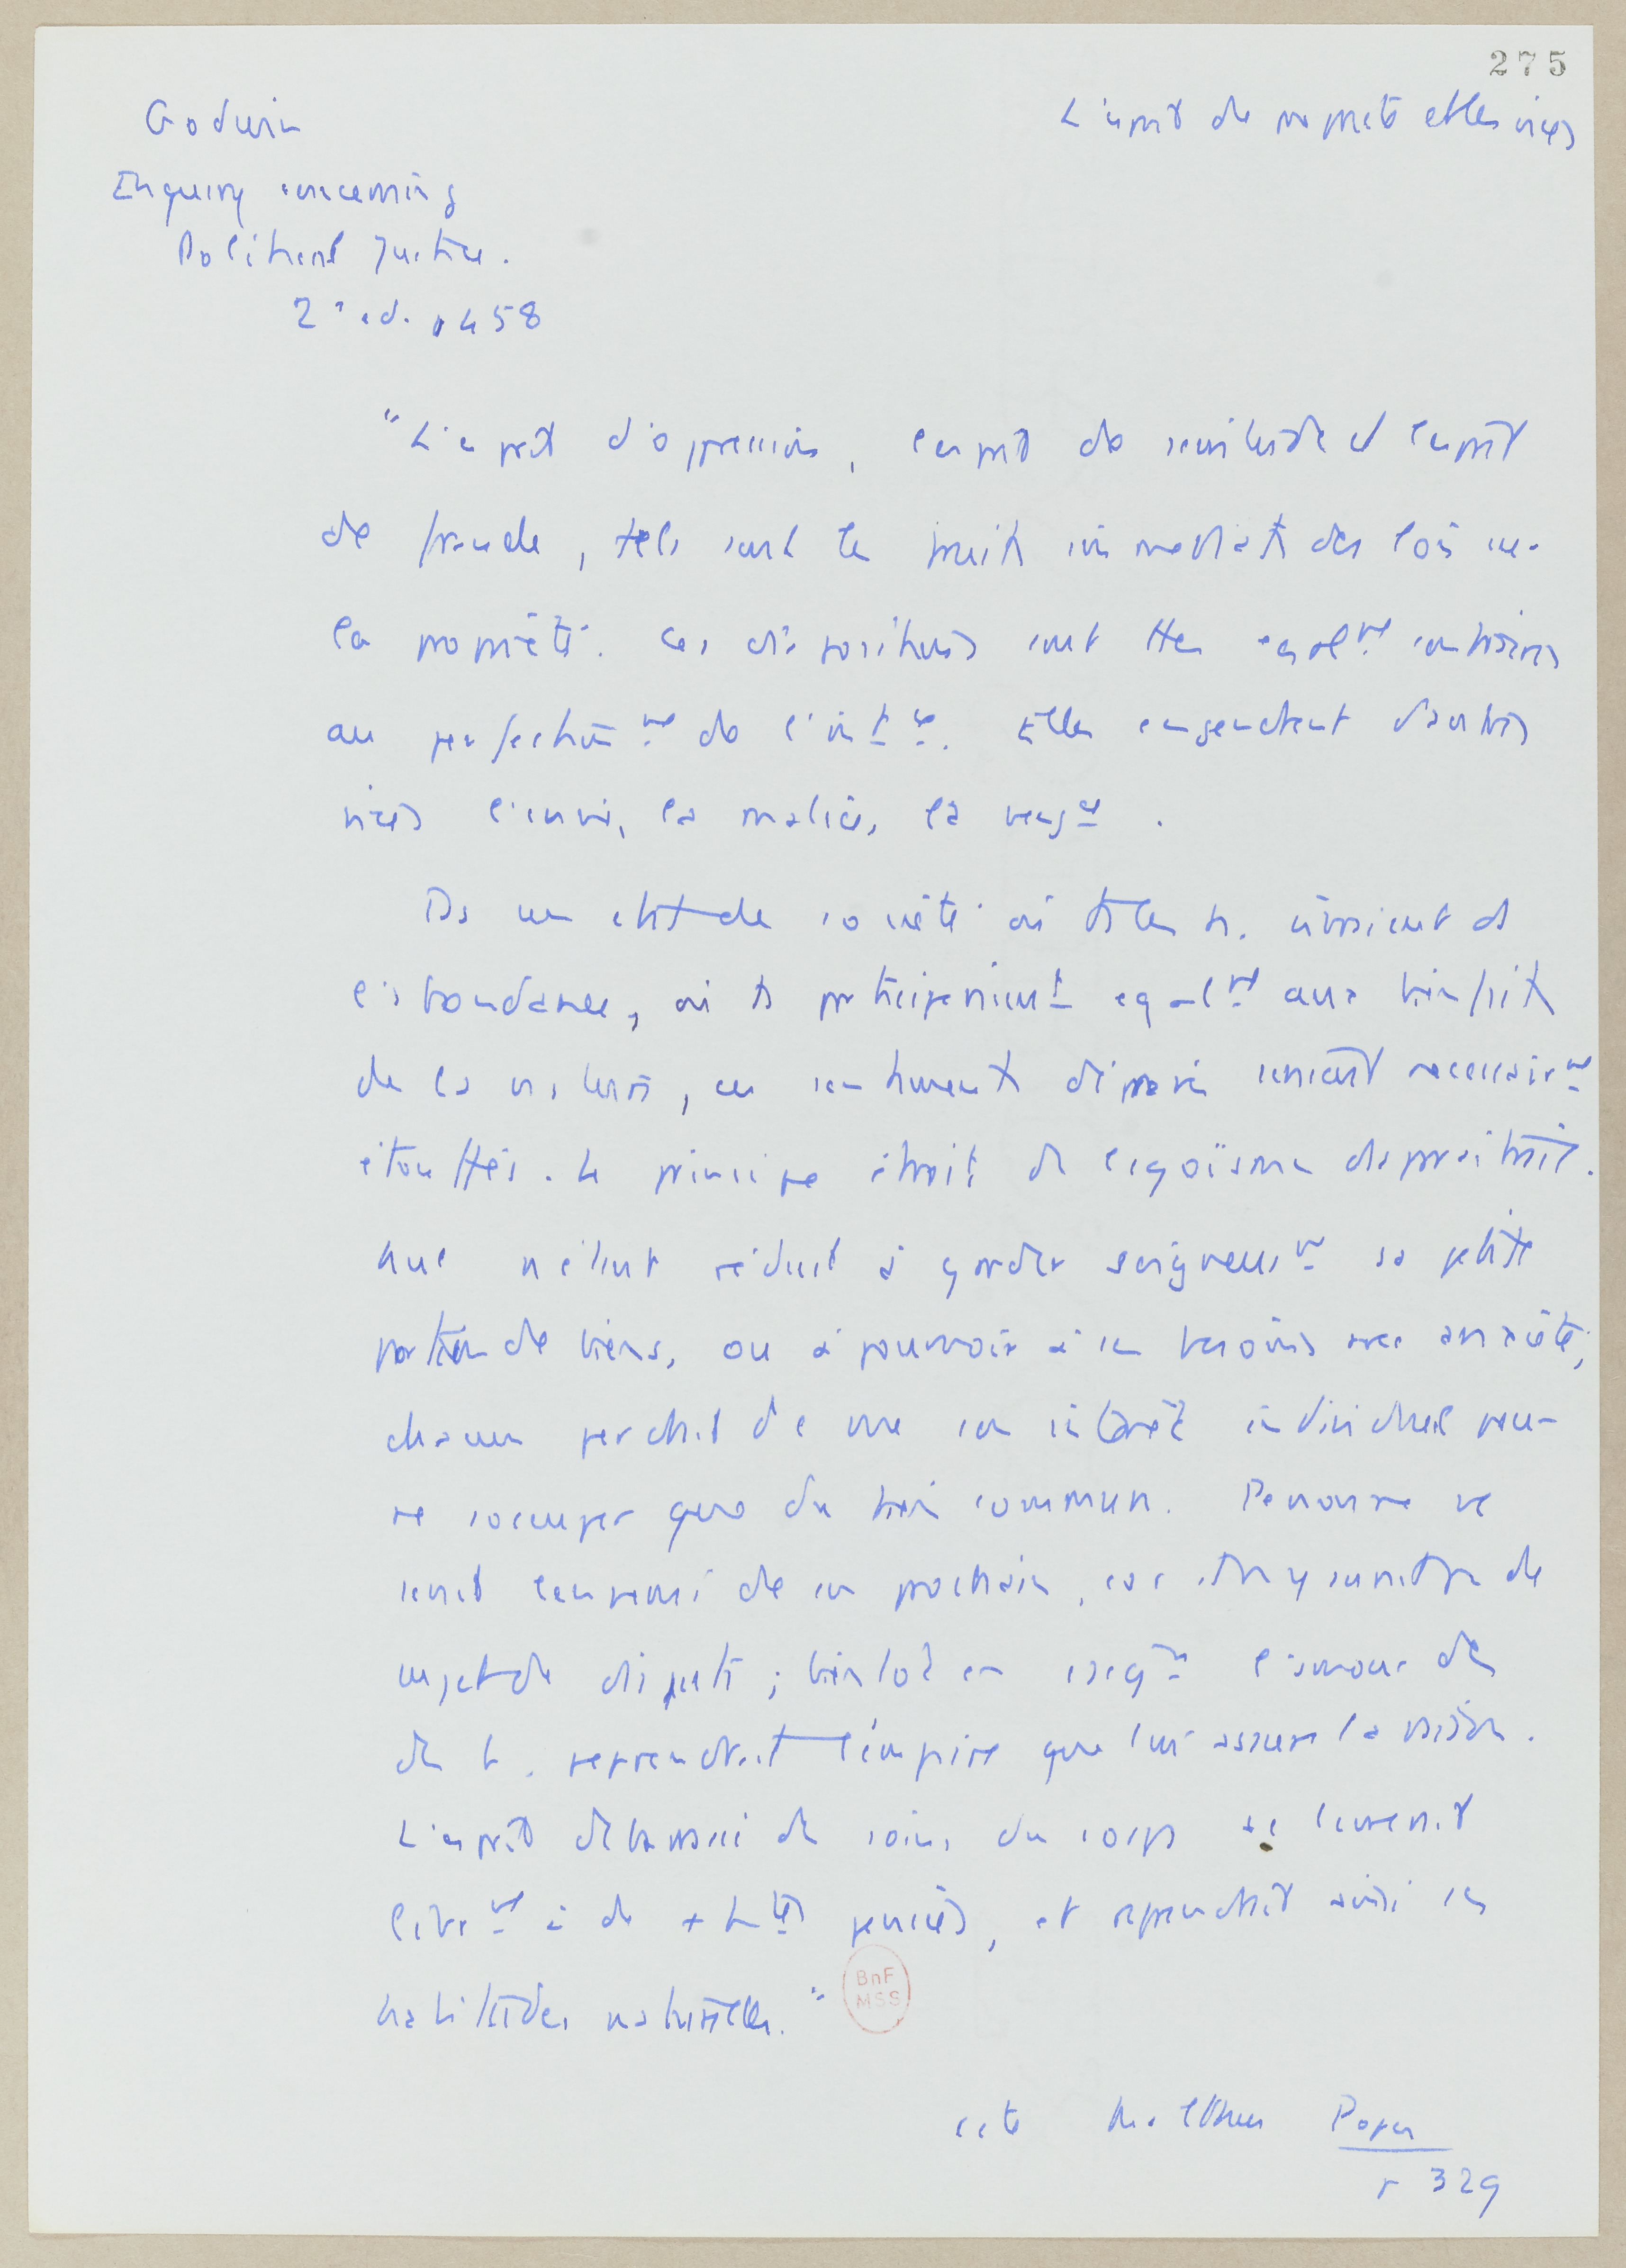 275
Godwin
L'esprit de propriété et les vices
Enquiry concerning
Political Justice.
2e ed. p 458
"L'esprit d'oppression, l'esprit de servitude et l'esprit
de fraude, tels sont les fruits immédiats des lois sur
la propriété. Ces dispositions sont ttes égalt contraires
au perfectiont de l'intce. Elles engendrent d'autres
vices l'envie, la malice, la vengce.
Ds un état de société où ts les h. vivraient ds
l'abondance, où ts participeraient égalt aux bienfaits
de la nature, ces sentiments dépravés seraient nécessairt
étouffés. Le principe étroit de l'égoïsme disparaîtrait.
Nul n'étant réduit à garder soigneust sa petite
portion de biens, ou à pourvoir à ses besoins avec anxiété,
chacun perdrait de vue son intérêt individuel pour
ne s'occuper que du bien commun. Personne ne
serait l'ennemi de son prochain, car il n'y aurait pas de
sujet de dispute; bientôt en conséqce l'amour des
des h. reprendrait l'empire que lui assure la raison.
L'esprit débarrassé des soins du corps se livrerait
librt à de + htes pensées, et reprendrait ainsi ses
habitudes naturelles."
BnF
MSS
cité Malthus Popu
p 329